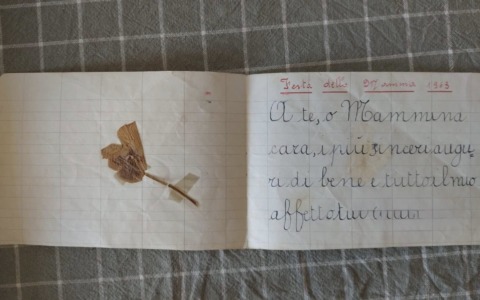 Festa della Mamma 1963
A te, o Mammina
cara, i più sinceri augu
ri di bene e tutto il mio
affetto